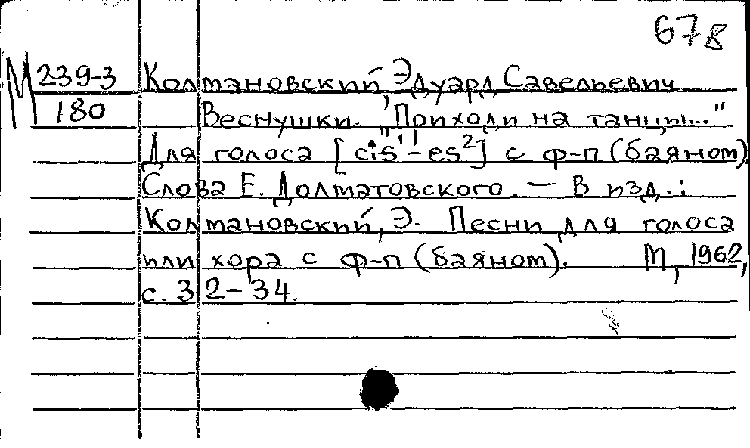 678
М 239-3 Колмановский, Эдуард Савельевич
180 Веснушки. "Приходи на танцы..."
Для голоса [cis¹-es²] с ф-п (баяном)
Слова Е. Долматовского. — В изд.:
Колмановский, Э. Песни для голоса
или хора с ф-п (баяном). М, 1962,
с. 32-34.